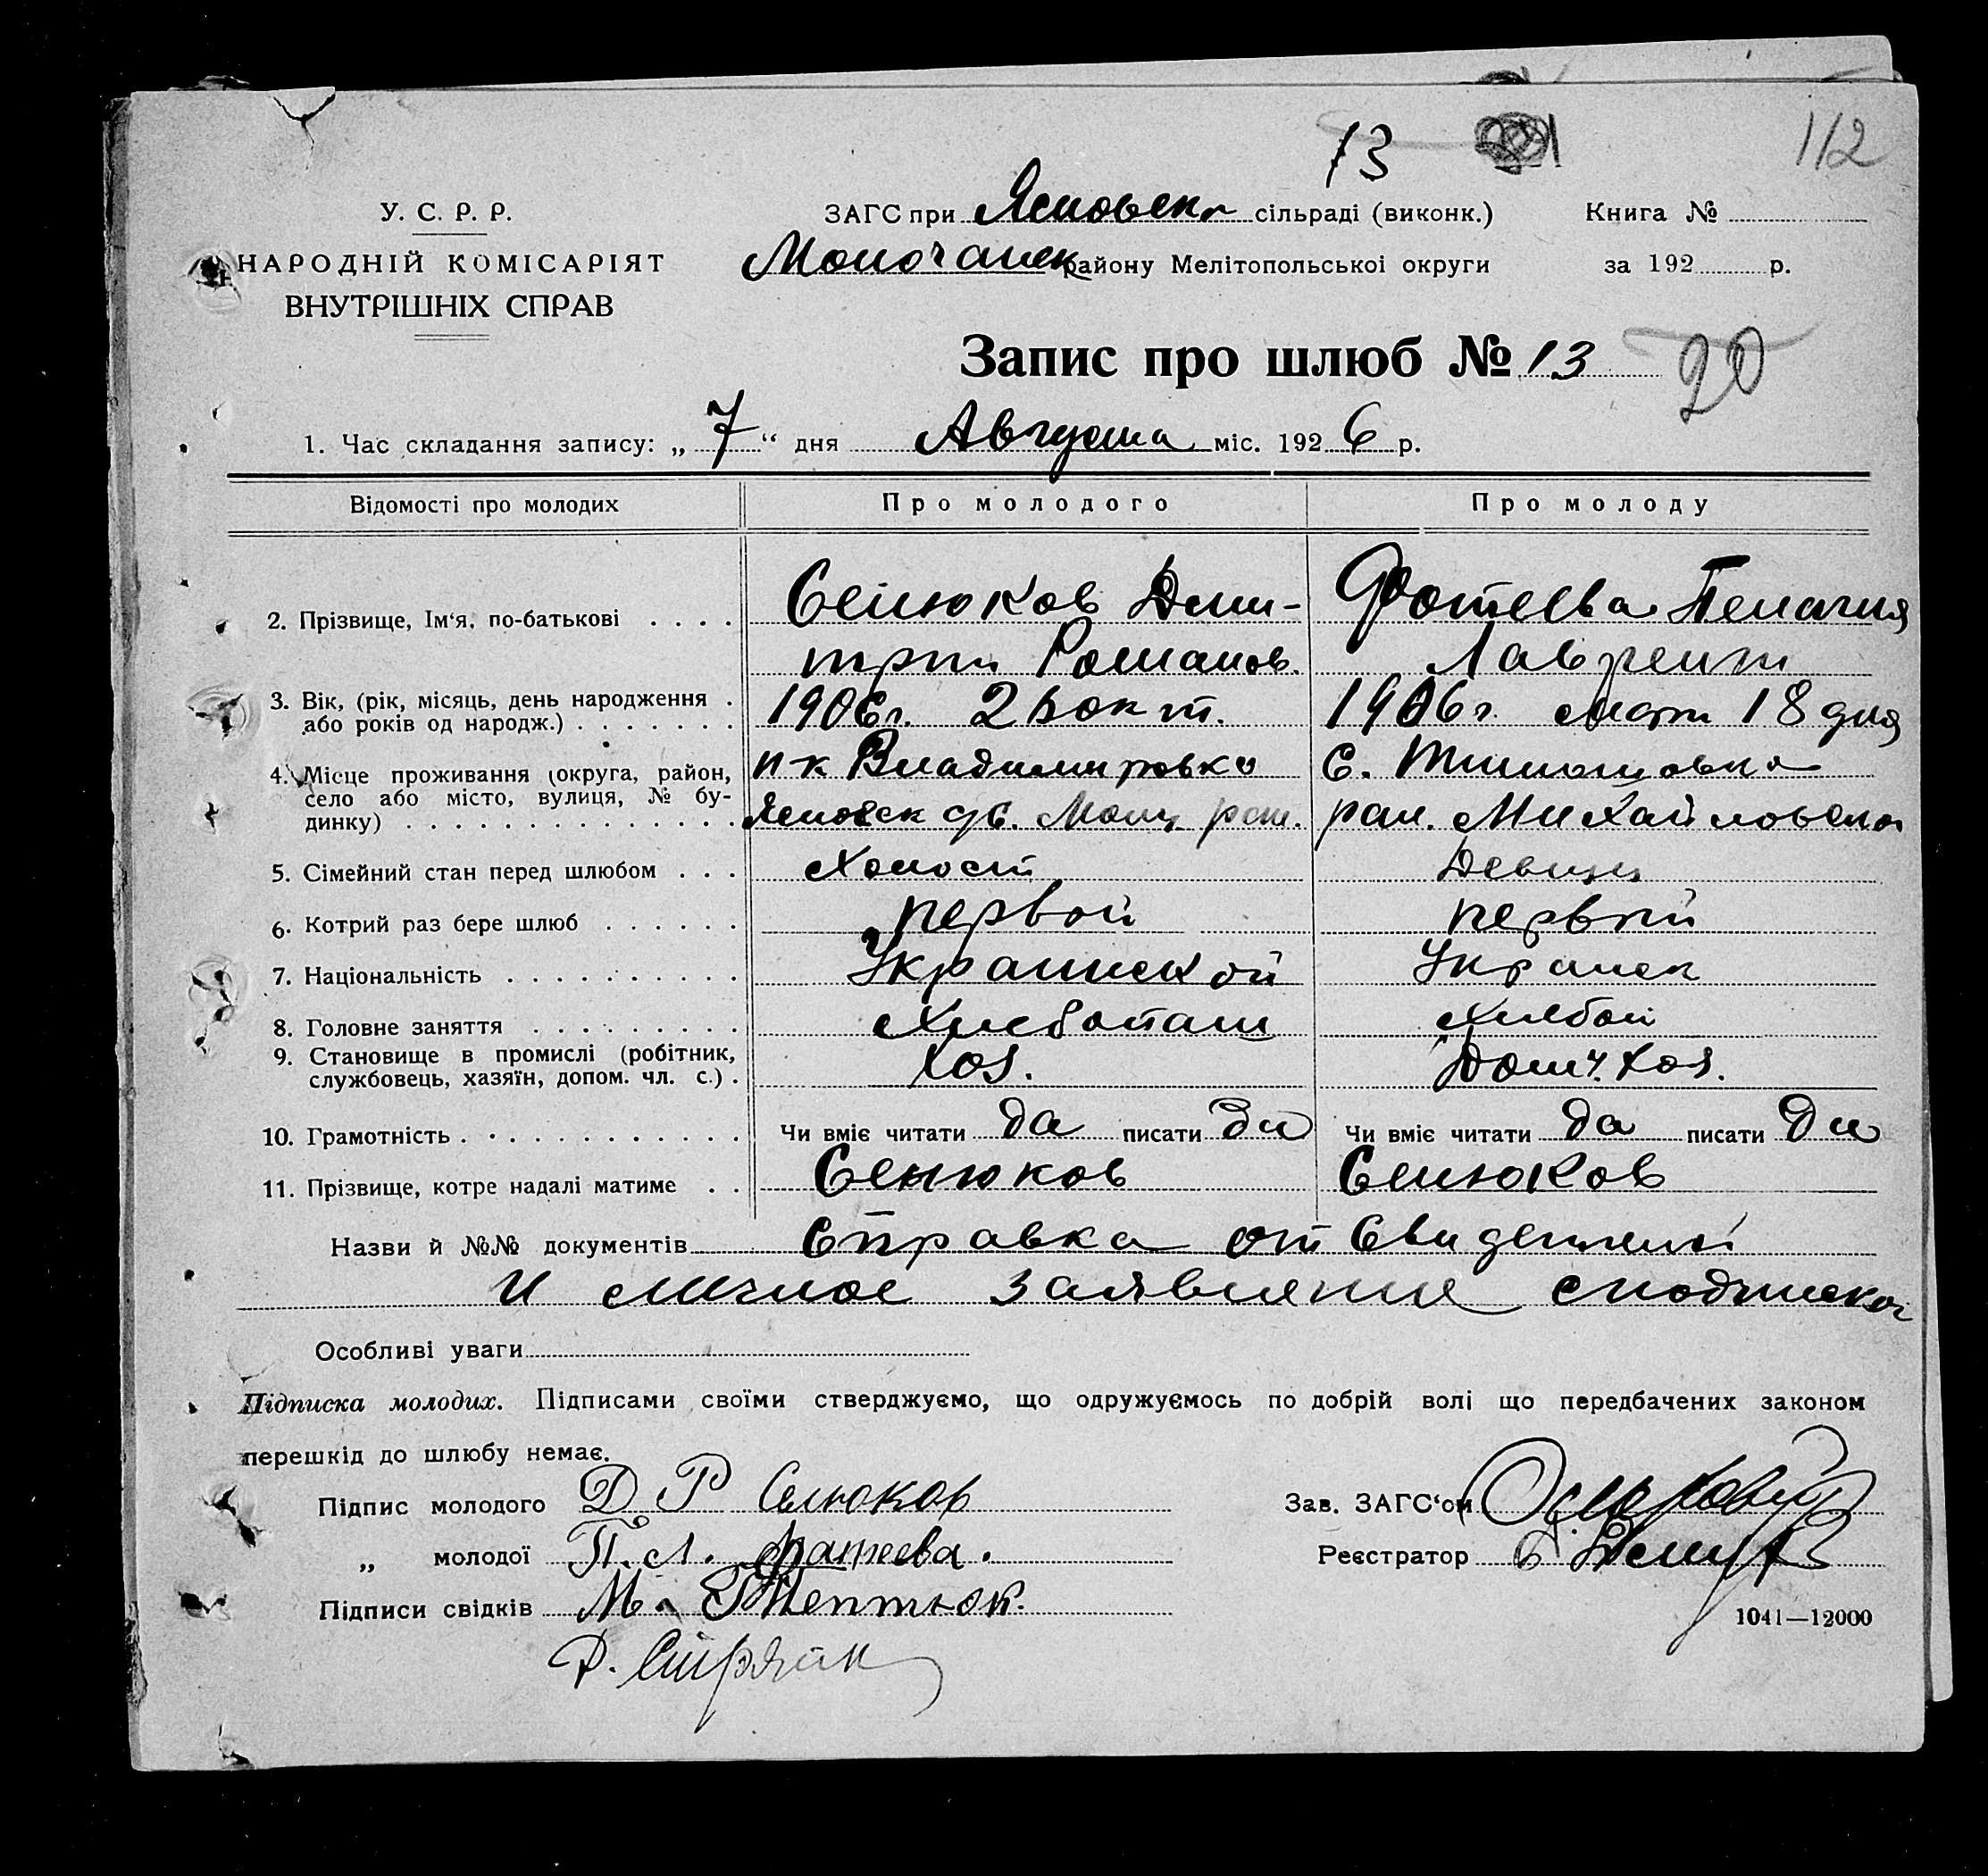 13
112
У. С. Р. Р.
НАРОДНІЙ КОМІСАРІЯТ
ВНУТРІШНІХ СПРАВ
ЗАГС при Ясновск сільраді (виконк.)
Молочанск району Мелітопольської округи
Книга №
за 192 р.
Запис про шлюб № 13
20
1. Час складання запису: „ 7 “ дня Августа міс. 192 6 р.
Відомості про молодих Про молодого Про молоду
2. Прізвище, Ім‘я, по-батькові . . . . Селюков Дми- Фотеева Пелагия
трий Романов. Лаврент
3. Вік, (рік, місяць, день народження . 1906г. окт. 1906г март 18 дня
або років од народж.) . . . . . . .
4. Місце проживання (округа, район, п-к Владимировка с. Тимошовка
село або місто, вулиця, № бу-
динку) . . . . . . . . . . . . . . Ясновск с/с. Молч рай. рай. Михайловски
5. Сімейний стан перед шлюбом . . . Холост Девица
6. Котрий раз бере шлюб . . . . . . первой первый
7. Національність . . . . . . . . . . . Украинской Украинск
8. Головне заняття . . . . . . . . . Хлебопаш хлебоп
9. Становище в промислі (робітник,
службовець, хазяїн, допом. чл. с.) . Хоз. Дом. хоз.
10. Грамотність . . . . . . . . . . . . Чи вміє читати да писати да Чи вміє читати да писати да
11. Прізвище, котре надалі матиме . . Селюков Селюков
Назви й №№ документів Справка от Свидетелей
и личное заявление с подпиской
Особливі уваги
Підписка молодих. Підписами своїми стверджуємо, що одружуємось по добрій волі що передбачених законом
перешкід до шлюбу немає.
Підпис молодого Д Р Селюков
Зав. ЗАГС‘ом
„ молодої П. Л. Фатеева.
Реєстратор
Підписи свідків М.
1041—12000